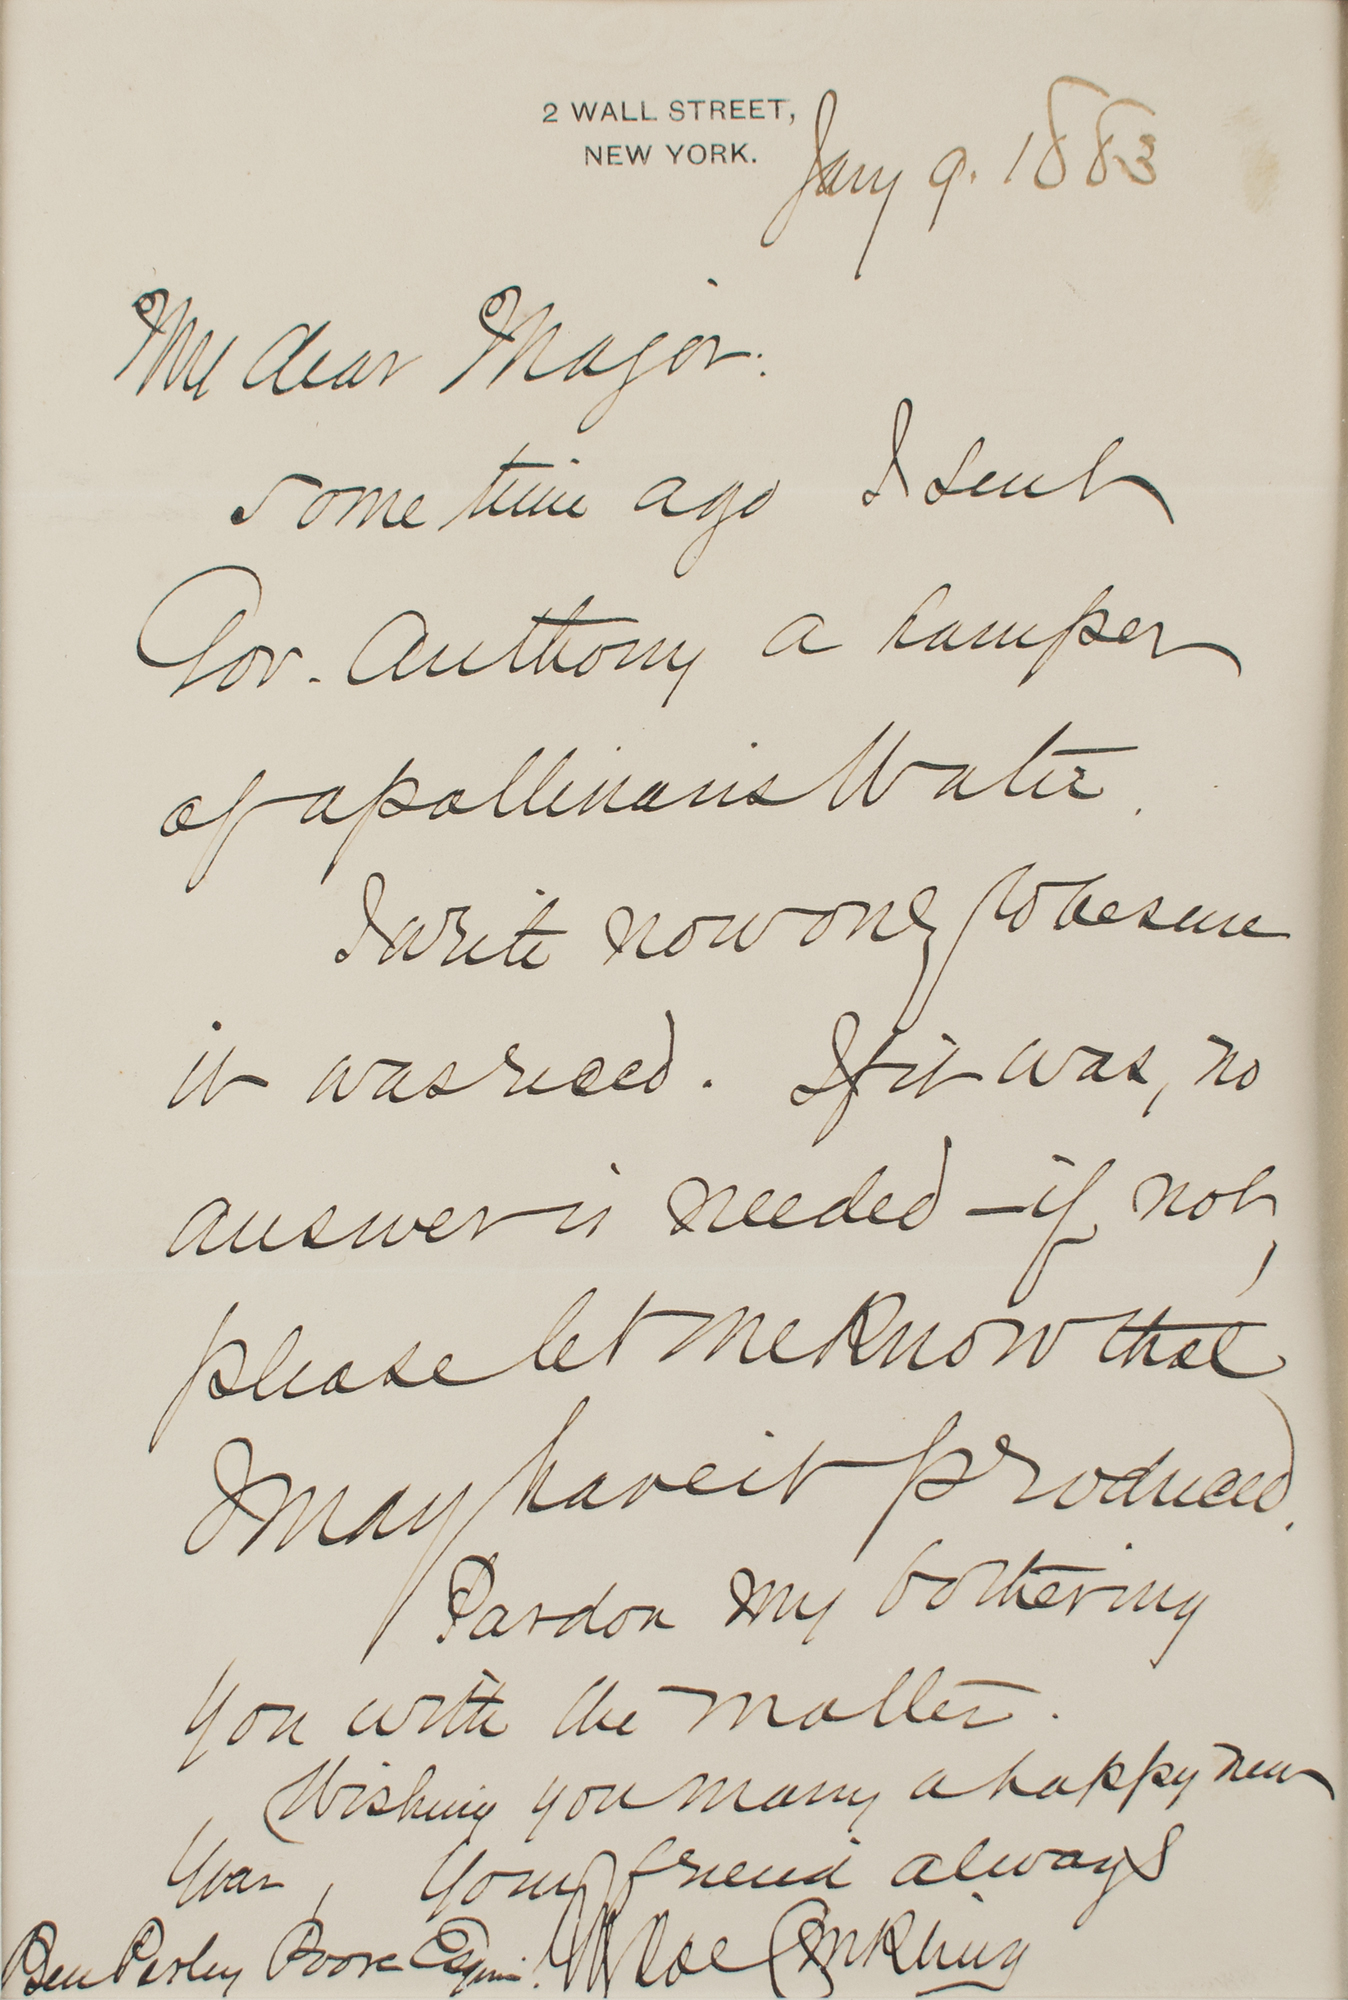 2 WALL STREET,
NEW YORK.
Jany 9. 1883
My dear Major.
some time ago I sent
Gov. Anthony a hamper
of apollinaris Water.
I write now only to be sure
it was recd. If it was, no
answer is needed – if not,
please let me know that
I may have it produced.
Pardon my bothering
you with the matter.
Wishing you many a happy new
year, Your friend always
Roscoe Conkling
Ben Perley Poore Esquire.